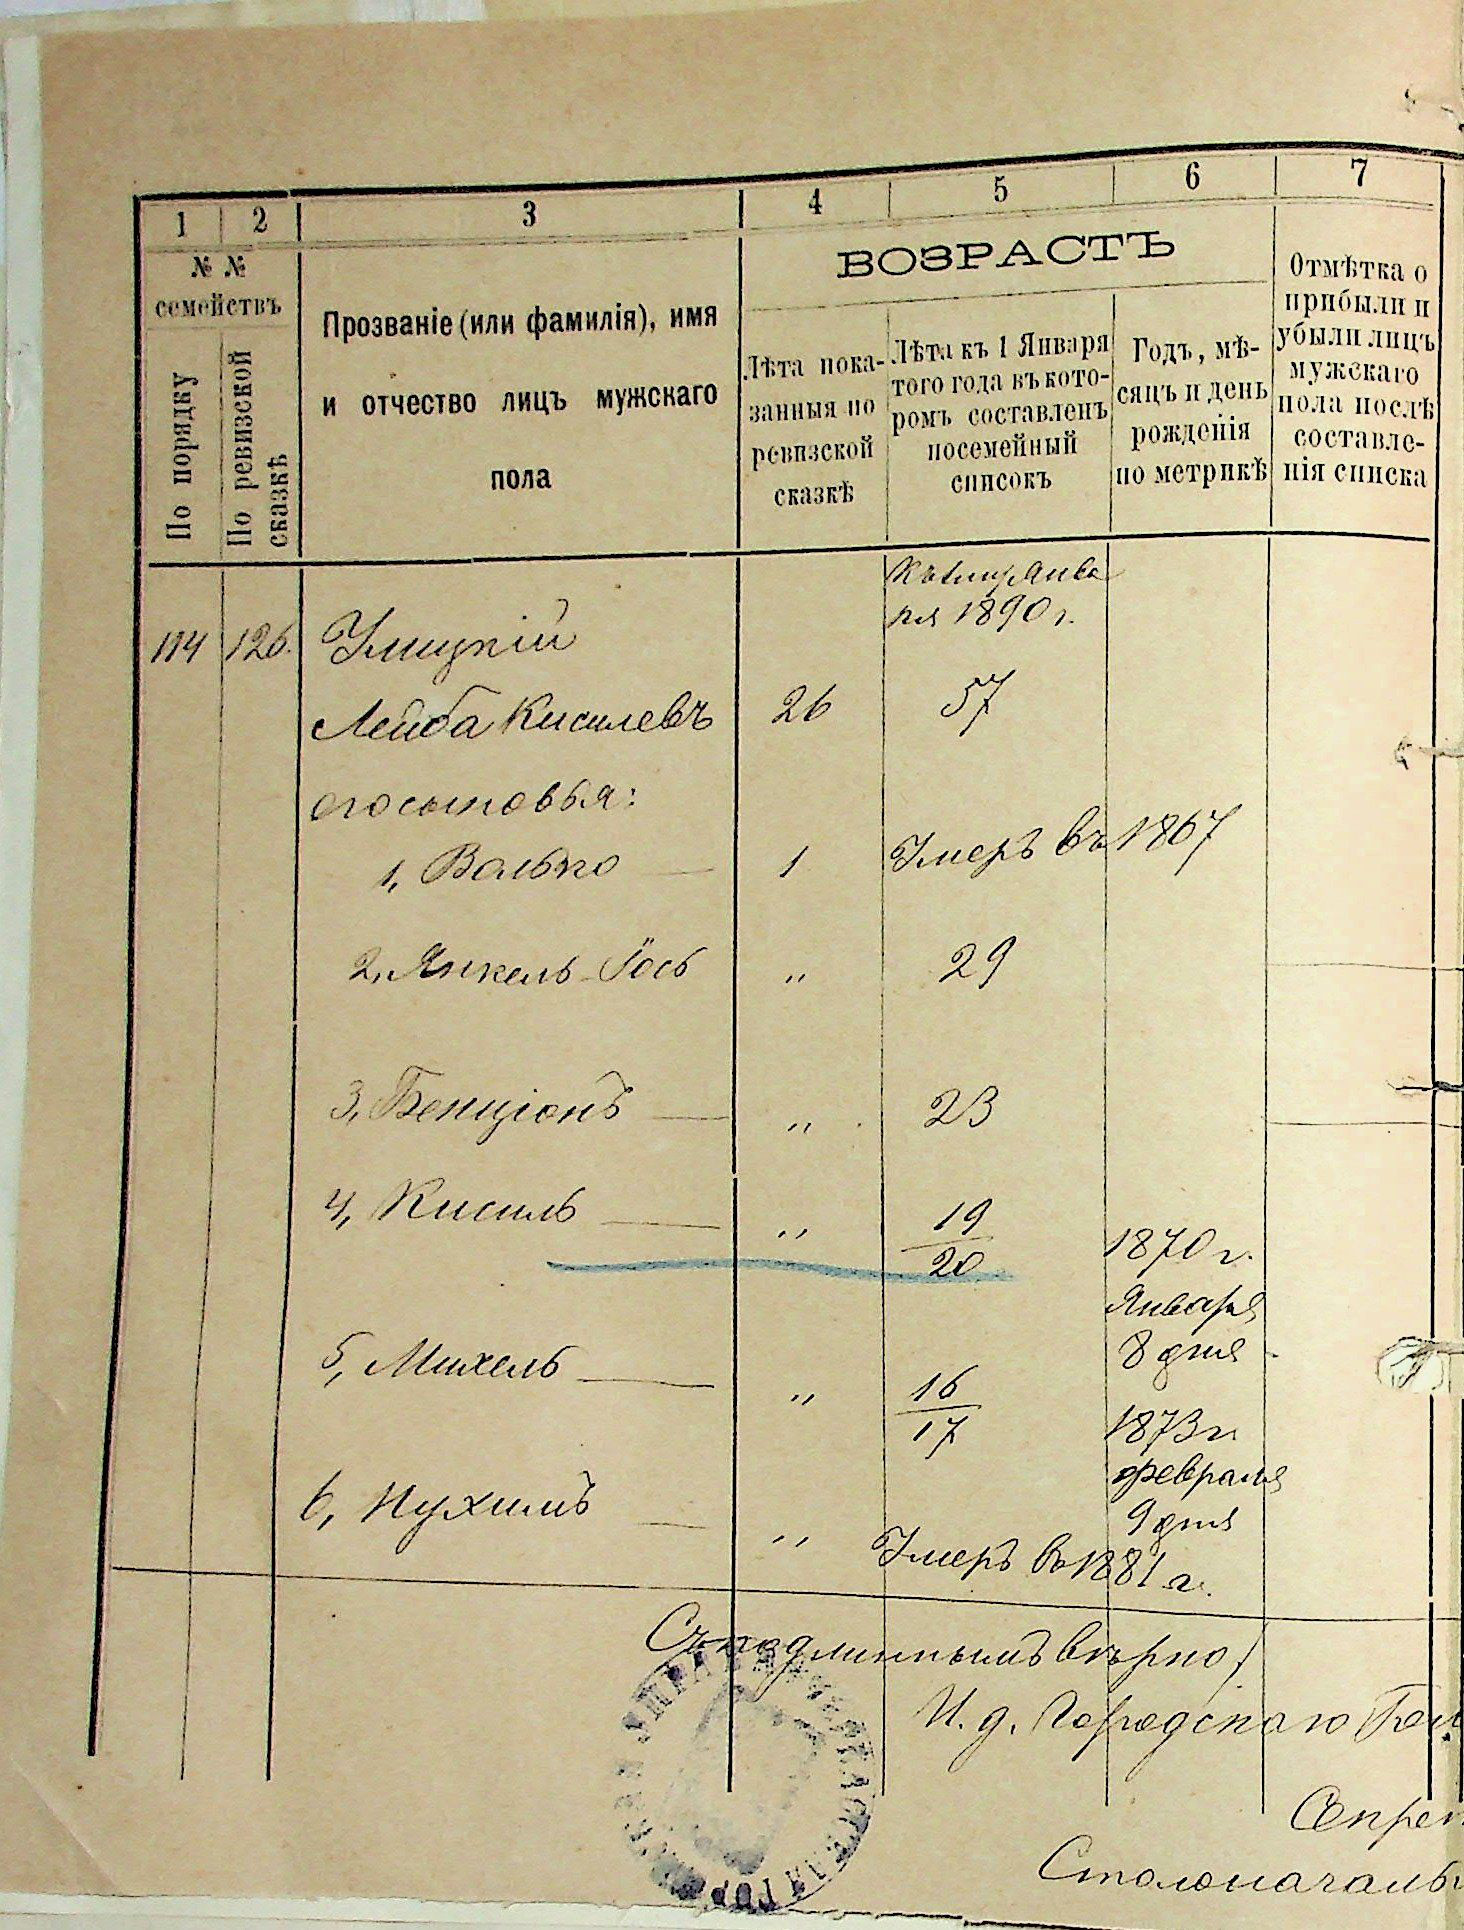 1 2 3 4 5 6 7
№ №
семействъ
По порядку
По ревизской
сказкѣ
Прозваніе (или фамилія), имя
и отчество лицъ мужскаго
пола
ВОЗРАСТЪ
Лѣта пока-
занныя по
ревизской
сказкѣ
Лѣта къ 1 Января
того года въ кото-
ромъ составленъ
посемейный
списокъ
Годъ, мѣ-
сяцъ и день
рожденія
по метрикѣ
Отмѣтка о
прибыли и
убыли лицъ
мужскаго
пола послѣ
составле-
нія списка
Янва
ря 1890 г.
114 126. Улицкій
Лейба Кисилевъ 26 57
его сыновья:
1, Волько — 1 Умеръ въ 1867
2, Янкель-Іось „ 29
3, Бенціонъ — „ 23
4, Кисиль — „ 19
20
1870 г.
Января
8 дня
5, Михель — „ 16
17
1873 г.
февраля
9 дня
6, Нухимъ — „ Умеръ въ 1881 г.
Съ подлиннымъ вѣрно,
И. д. Городскаго
Столоначаль